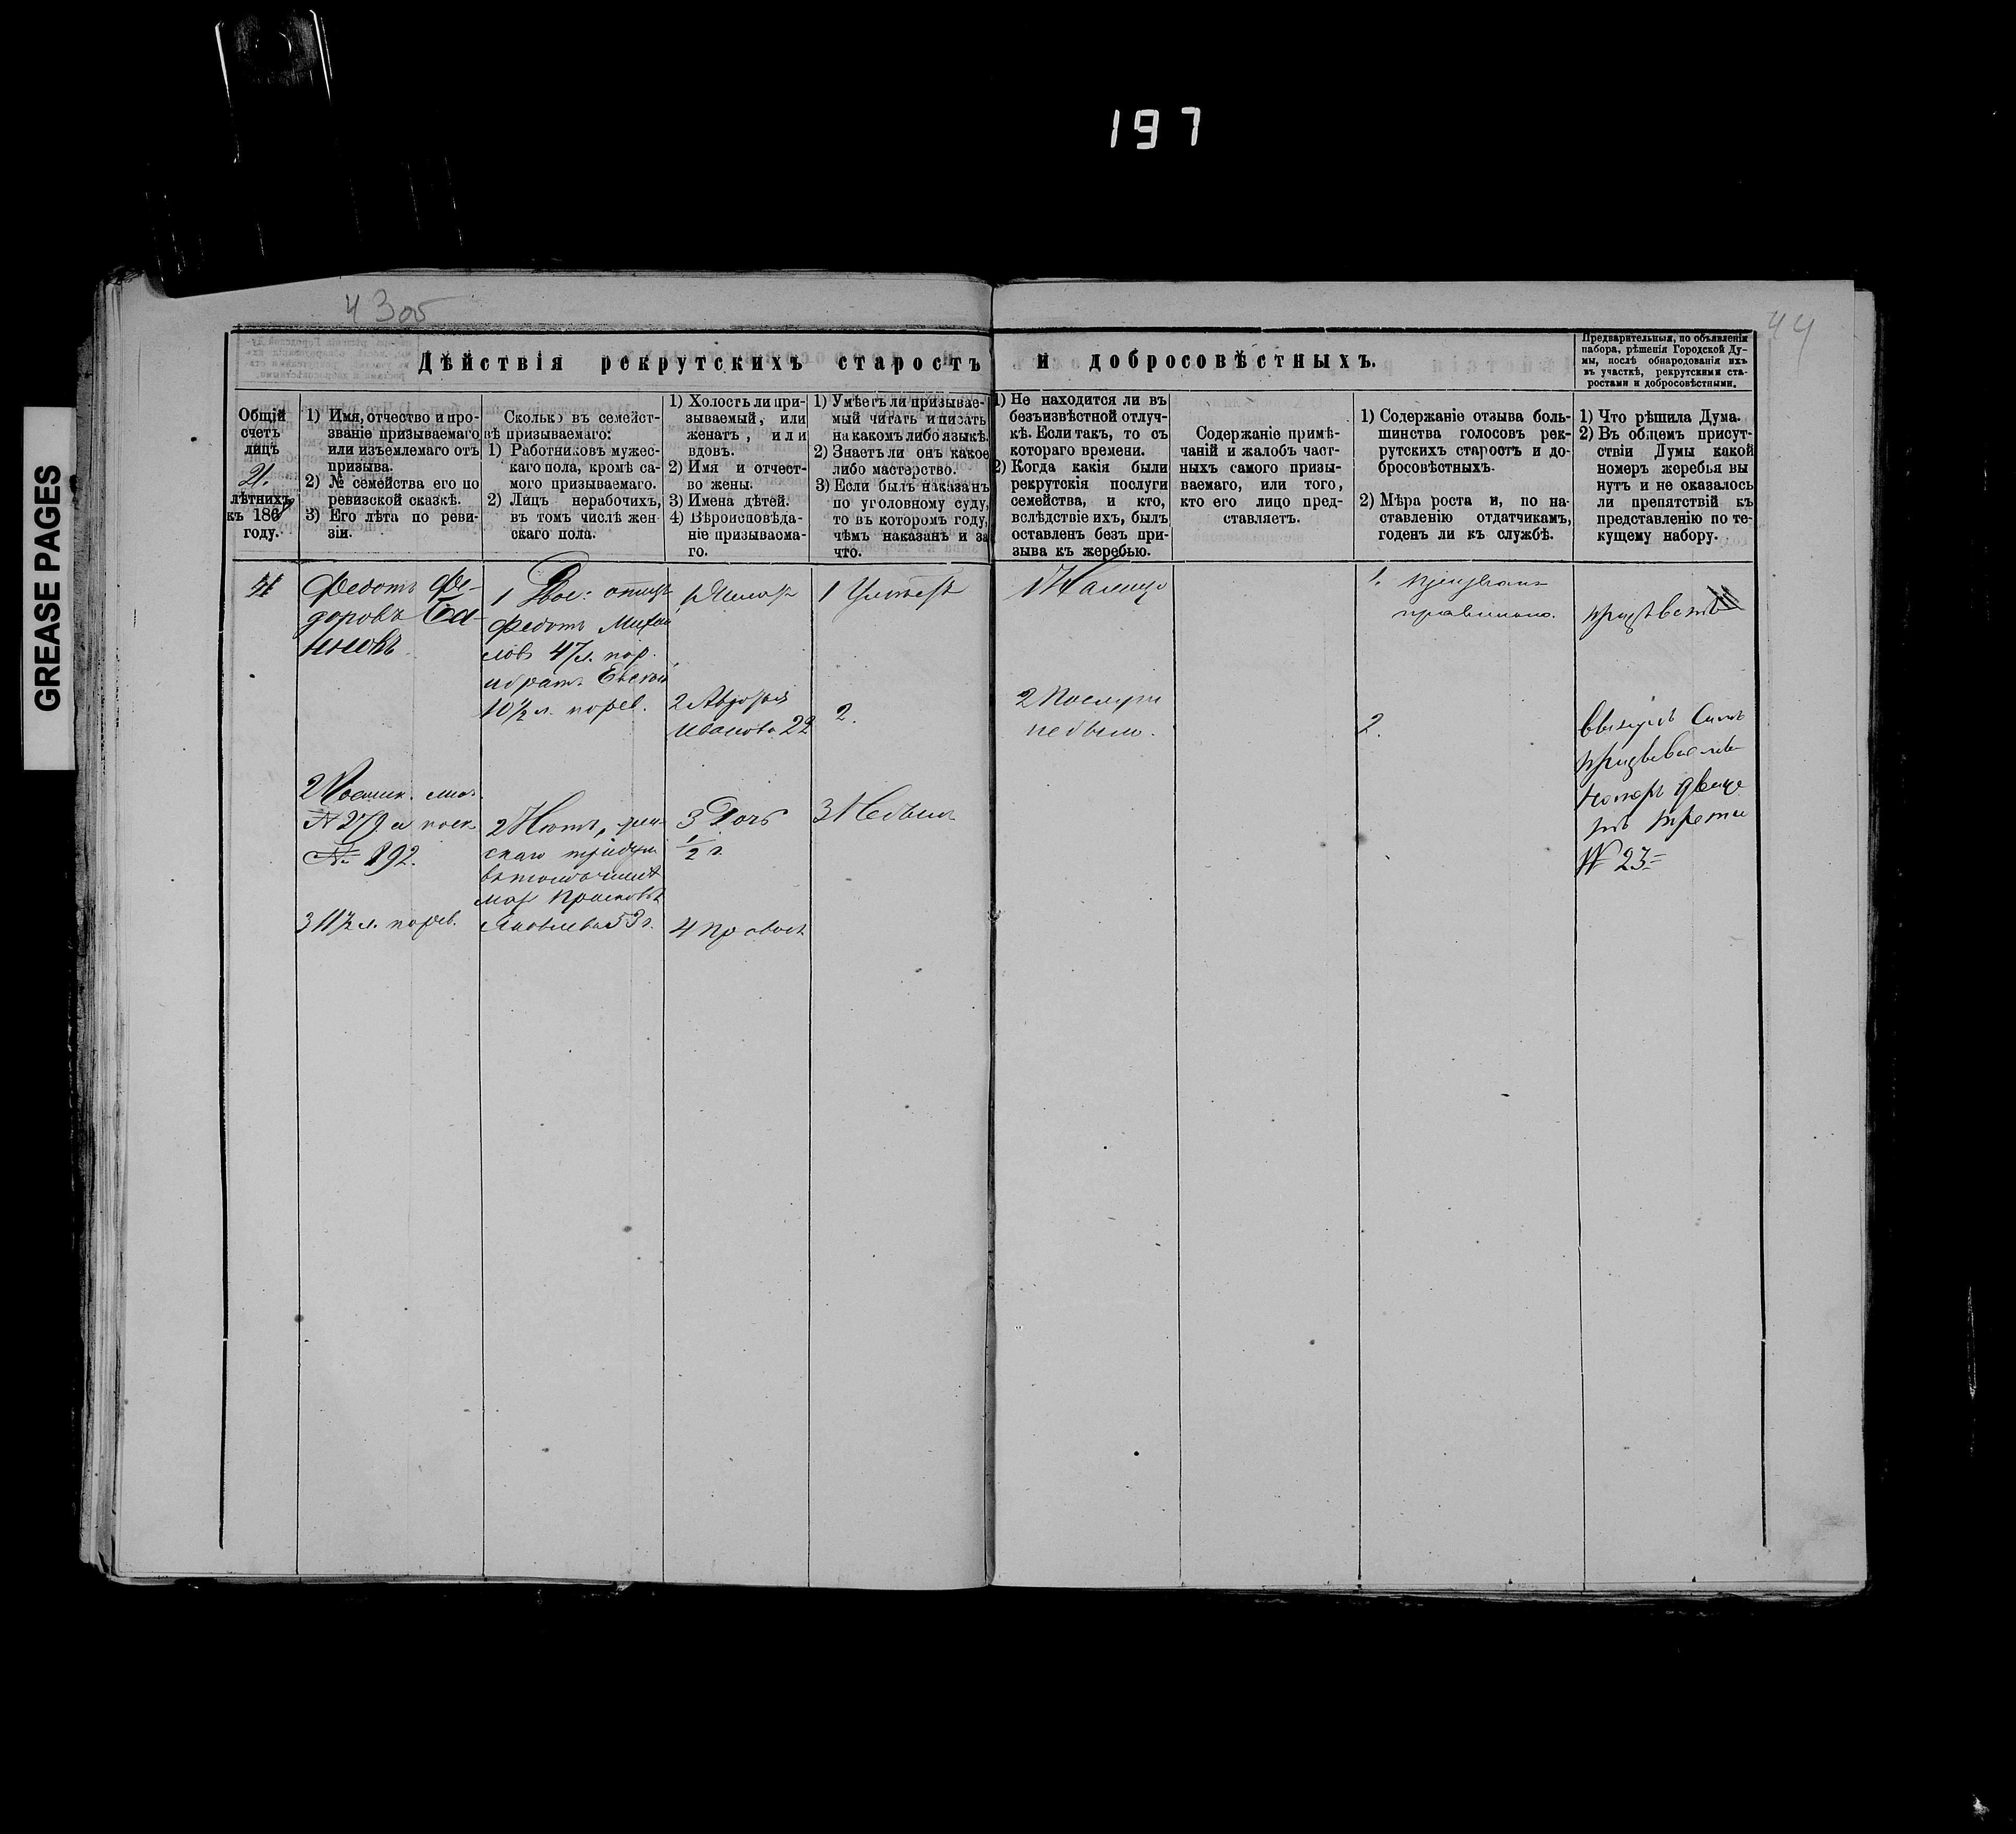 197
GREASE PAGES
43об
44
Дѣйствія рекрутскихъ старостъ и добросовѣстныхъ.
Предварительныя, по объявленіи
набора, рѣшенія Городской Ду-
мы, послѣ обнародованія ихъ
въ участкѣ, рекрутскими ста-
ростами и добросовѣстными.
Общій
счетъ
лицъ
21.
лѣтнихъ
къ 186
году.
1) Имя, отчество и про-
званіе призываемаго
или изъемлемаго отъ
призыва.
2) № семейства его по
ревизской сказкѣ.
3) Его лѣта по реви-
зіи.
Сколько въ семейст-
вѣ призываемаго:
1) Работниковъ мужес-
каго пола, кромѣ са-
мого призываемаго.
2) Лицъ нерабочихъ,
въ томъ числѣ жен-
скаго пола.
1) Холостъ ли при-
зываемый, или
женатъ, или
вдовъ.
2) Имя и отчест-
во жены.
3) Имена дѣтей.
4) Вѣроисповѣда-
ніе призываема-
го.
1) Умѣетъ ли призывае-
мый читать и писать
на какомъ либо языкѣ.
2) Знаетъ ли онъ какое
либо мастерство.
3) Если былъ наказанъ
по уголовному суду,
то въ которомъ году,
чѣмъ наказанъ и за
что.
1) Не находится ли въ
безъизвѣстной отлуч-
кѣ. Если такъ, то съ
котораго времени.
2) Когда какія были
рекрутскія послуги
семейства, и кто,
вслѣдствіе ихъ, былъ
оставленъ безъ при-
зыва къ жеребью.
Содержаніе примѣ-
чаній и жалобъ част-
ныхъ самого призы-
ваемаго, или того,
кто его лицо пред-
ставляетъ.
1) Содержаніе отзыва боль-
шинства голосовъ рек-
рутскихъ старостъ и до-
бросовѣстныхъ.
2) Мѣра роста и, по на-
ставленію отдатчикамъ,
годенъ ли къ службѣ.
1) Что рѣшила Дума.
2) Въ общемъ присут-
ствіи Думы какой
номеръ жеребья вы
нутъ и не оказалось
ли препятствій къ
представленію по те-
кущему набору.
4
Федотъ Фе-
доровъ
1 Двое: отецъ
Федотъ Михай
ловъ 47 л. по р.
и братъ
10½ л. по рев.
1
2
Иванова 22
3 Дочь
½ г.
4 Правос.
1 Умѣетъ
2.
3 Небылъ
1 Налицо
2 Послуги
небыло.
1. призванъ
правильно.
2.
2
№ 279 а
№ 192.
3 11½ л. по рев.
2 Нѣтъ,
53 г.
номеръ двадца
ть третій
№ 23